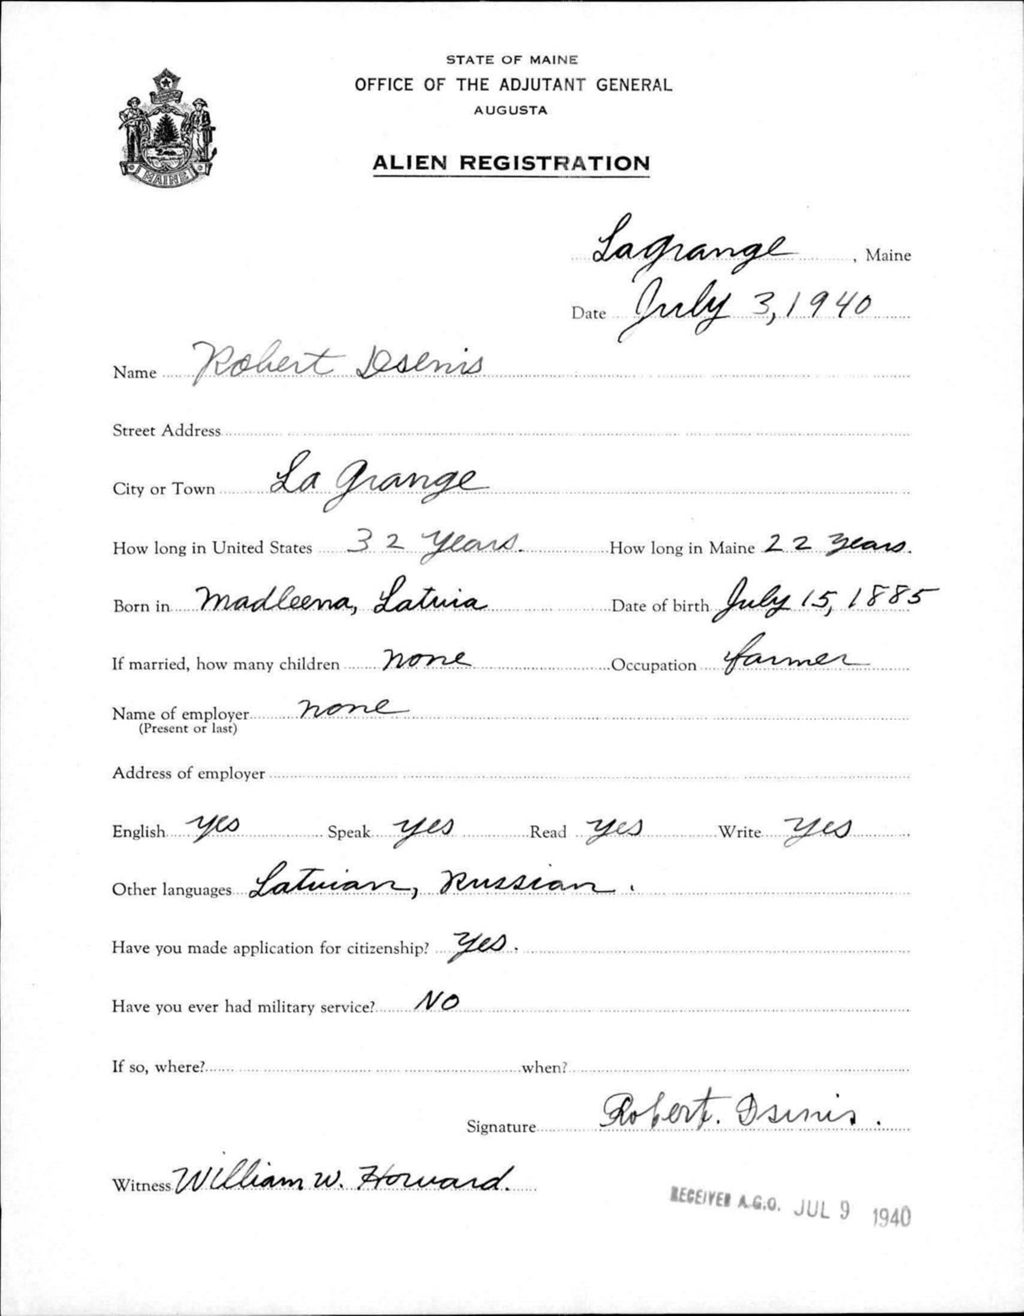 STATE OF MAINE
OFFICE OF THE ADJUTANT GENERAL
AUGUSTA
ALIEN REGISTRATION
MAINE
Lagrange, Maine
Date July 3, 1940
Name Robert Dsenis
Street Address
City or Town La Grange
How long in United States 32 Years. How long in Maine 22 years.
Born in Madleena, Latvia Date of birth July 15, 1885
If married, how many children none Occupation farmer
Name of employer none
(Present or last)
Address of employer
English yes Speak yes Read yes Write yes
Other languages Latvian, Russian.
Have you made application for citizenship? Yes.
Have you ever had military service? NO
If so, where? when?
Signature Robert. Dsenis.
Witness William W. Howard.
RECEIVED A.G.O. JUL 9 1940